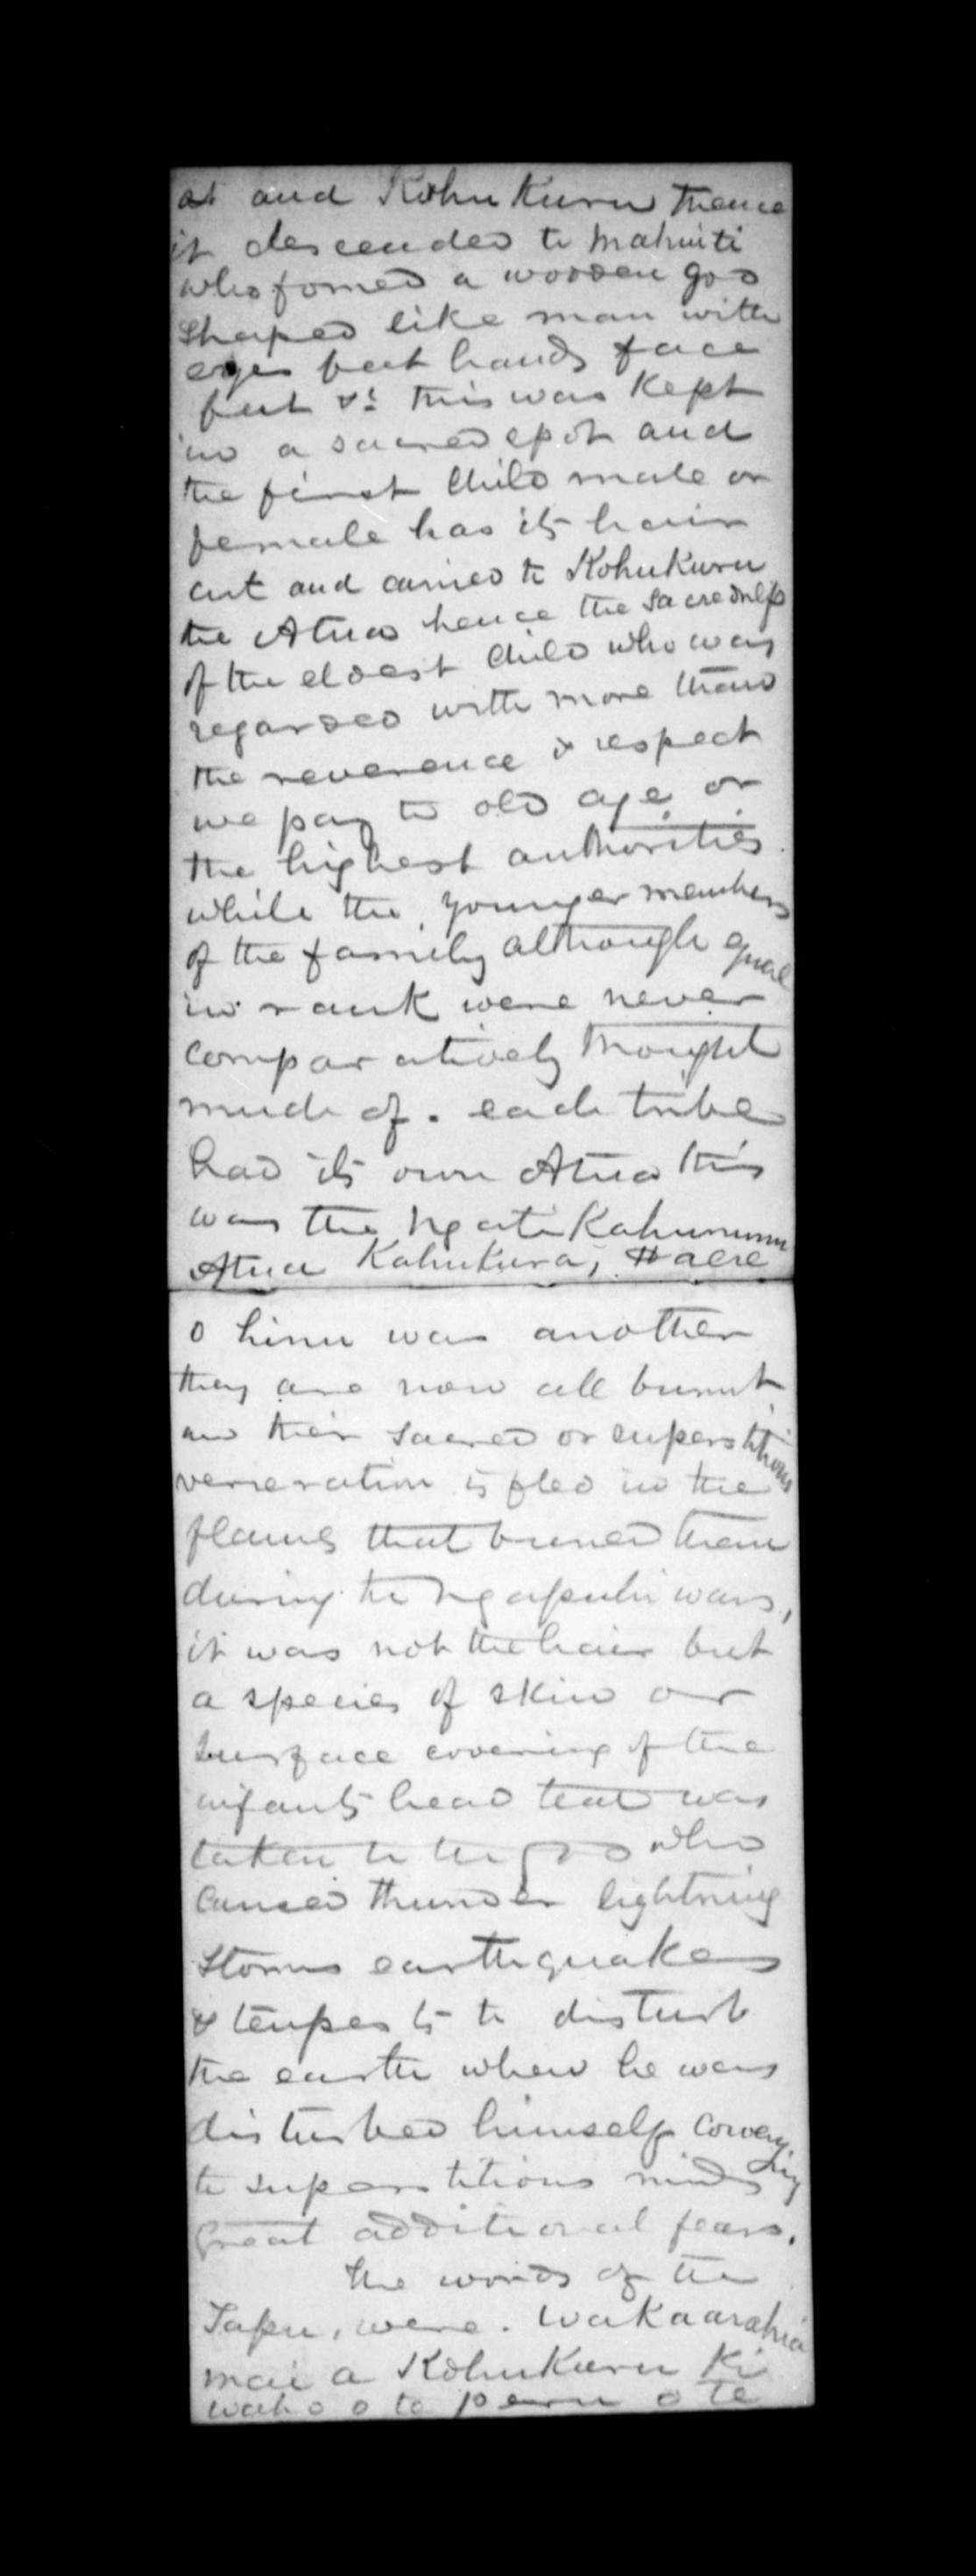 at and Kohu Kuru thence
it descended to Mahuiti
who fomed a wooden god
shaped like man with
eyes feet hands face
feet &c this was Kept
in a sacred spot and
the first Child male or
female has its hair
cut and carried to Kohukuru
the Atua hence the sacredness
of the eldest Child who was
regarded with more than
the reverence & respect
we pay to old age or
the highest authorities
while the younger members
of the family although equal
in rank were never
comparatively thought
much of. each tribe
had its own Atua this
was the Ngati Kahununu
Atua Kahukura, Haere
o hinu was another
they are now all burnt
and their sacred or superstitious
veneration is fled in the
flames that burned them
during the Ngapuhi wars,
it was not the hair but
a species of skin or
surface covering of the
infants head that was
taken to the god who
caused thunder lightning
storms earthquakes
& tempests to disturb
the earth when he was
disturbed himself conveying
to superstitious minds
great additional fears.
the words of the
Tapu, were. Wakaarahia
mai a Kohukuru Ki
waho o te peru o te